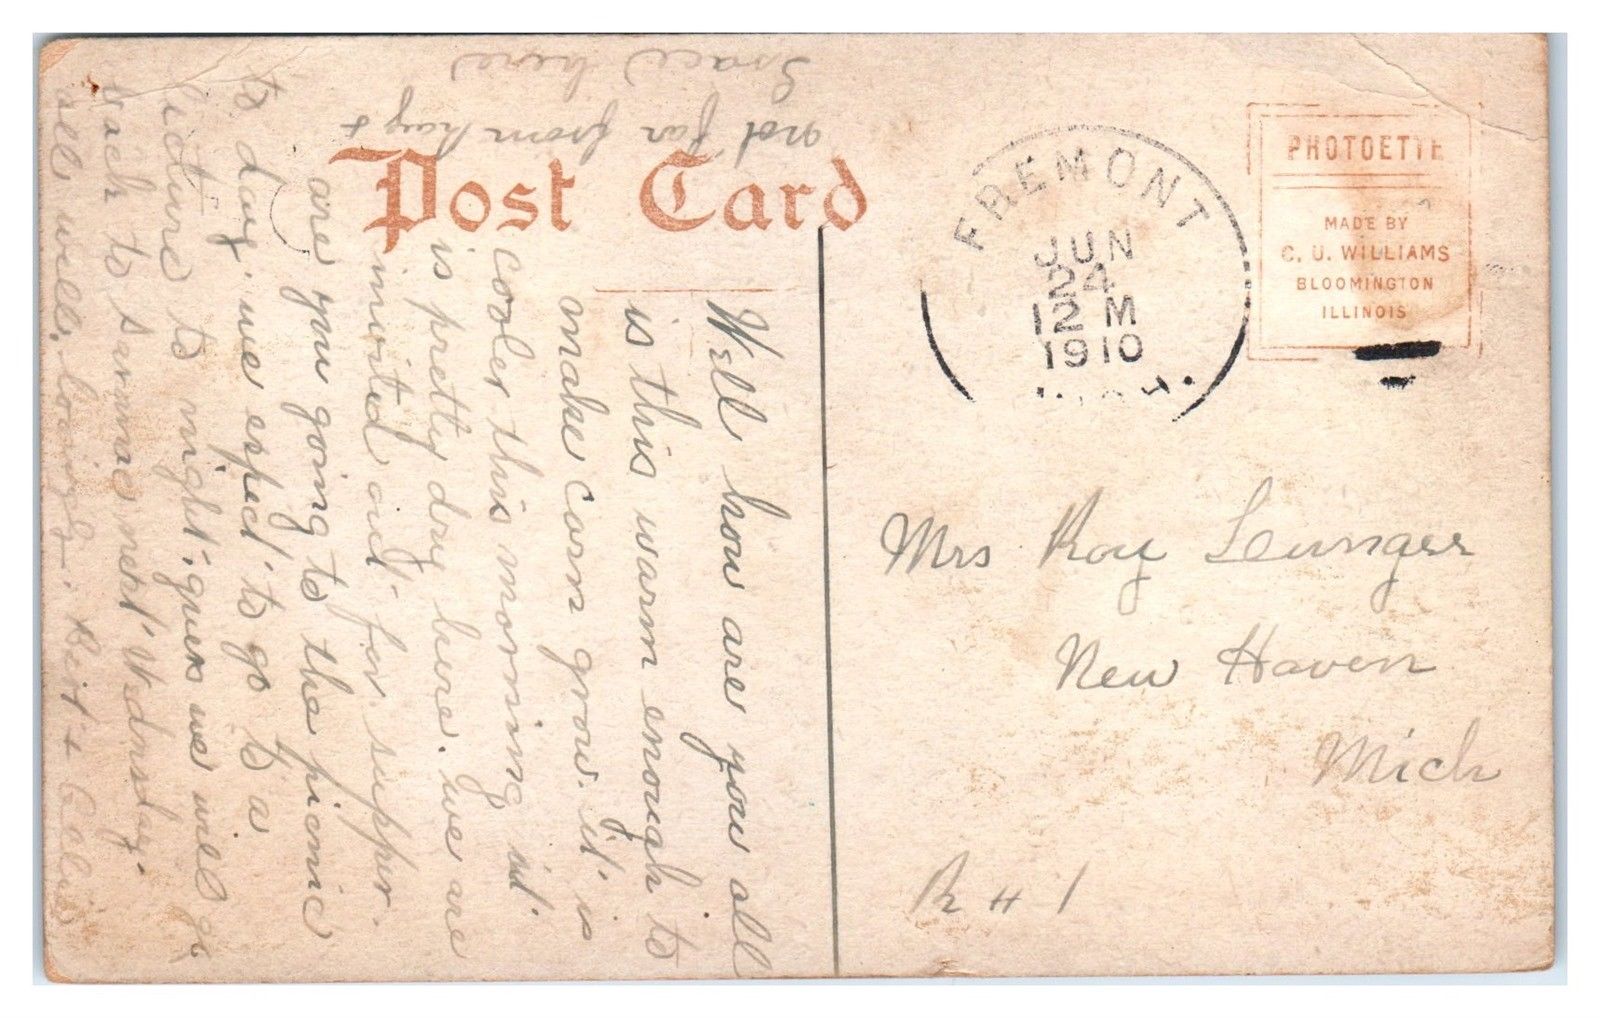 Post Card
PHOTOETTE
MADE BY
C. U. WILLIAMS
BLOOMINGTON
ILLINOIS
FREMONT
JUN
24
12 M
1910
Mrs Roy
New Haven
Mich
R # 1
Well how are you all
is this warm enough to
make corn grow. it is
cooler this morning it
is pretty dry here. we are
invited out for supper.
are you going to the picnic
to day we expect to go to a
to night. guess we will go
back to next Wednsday.
all well. loving
not far from
here